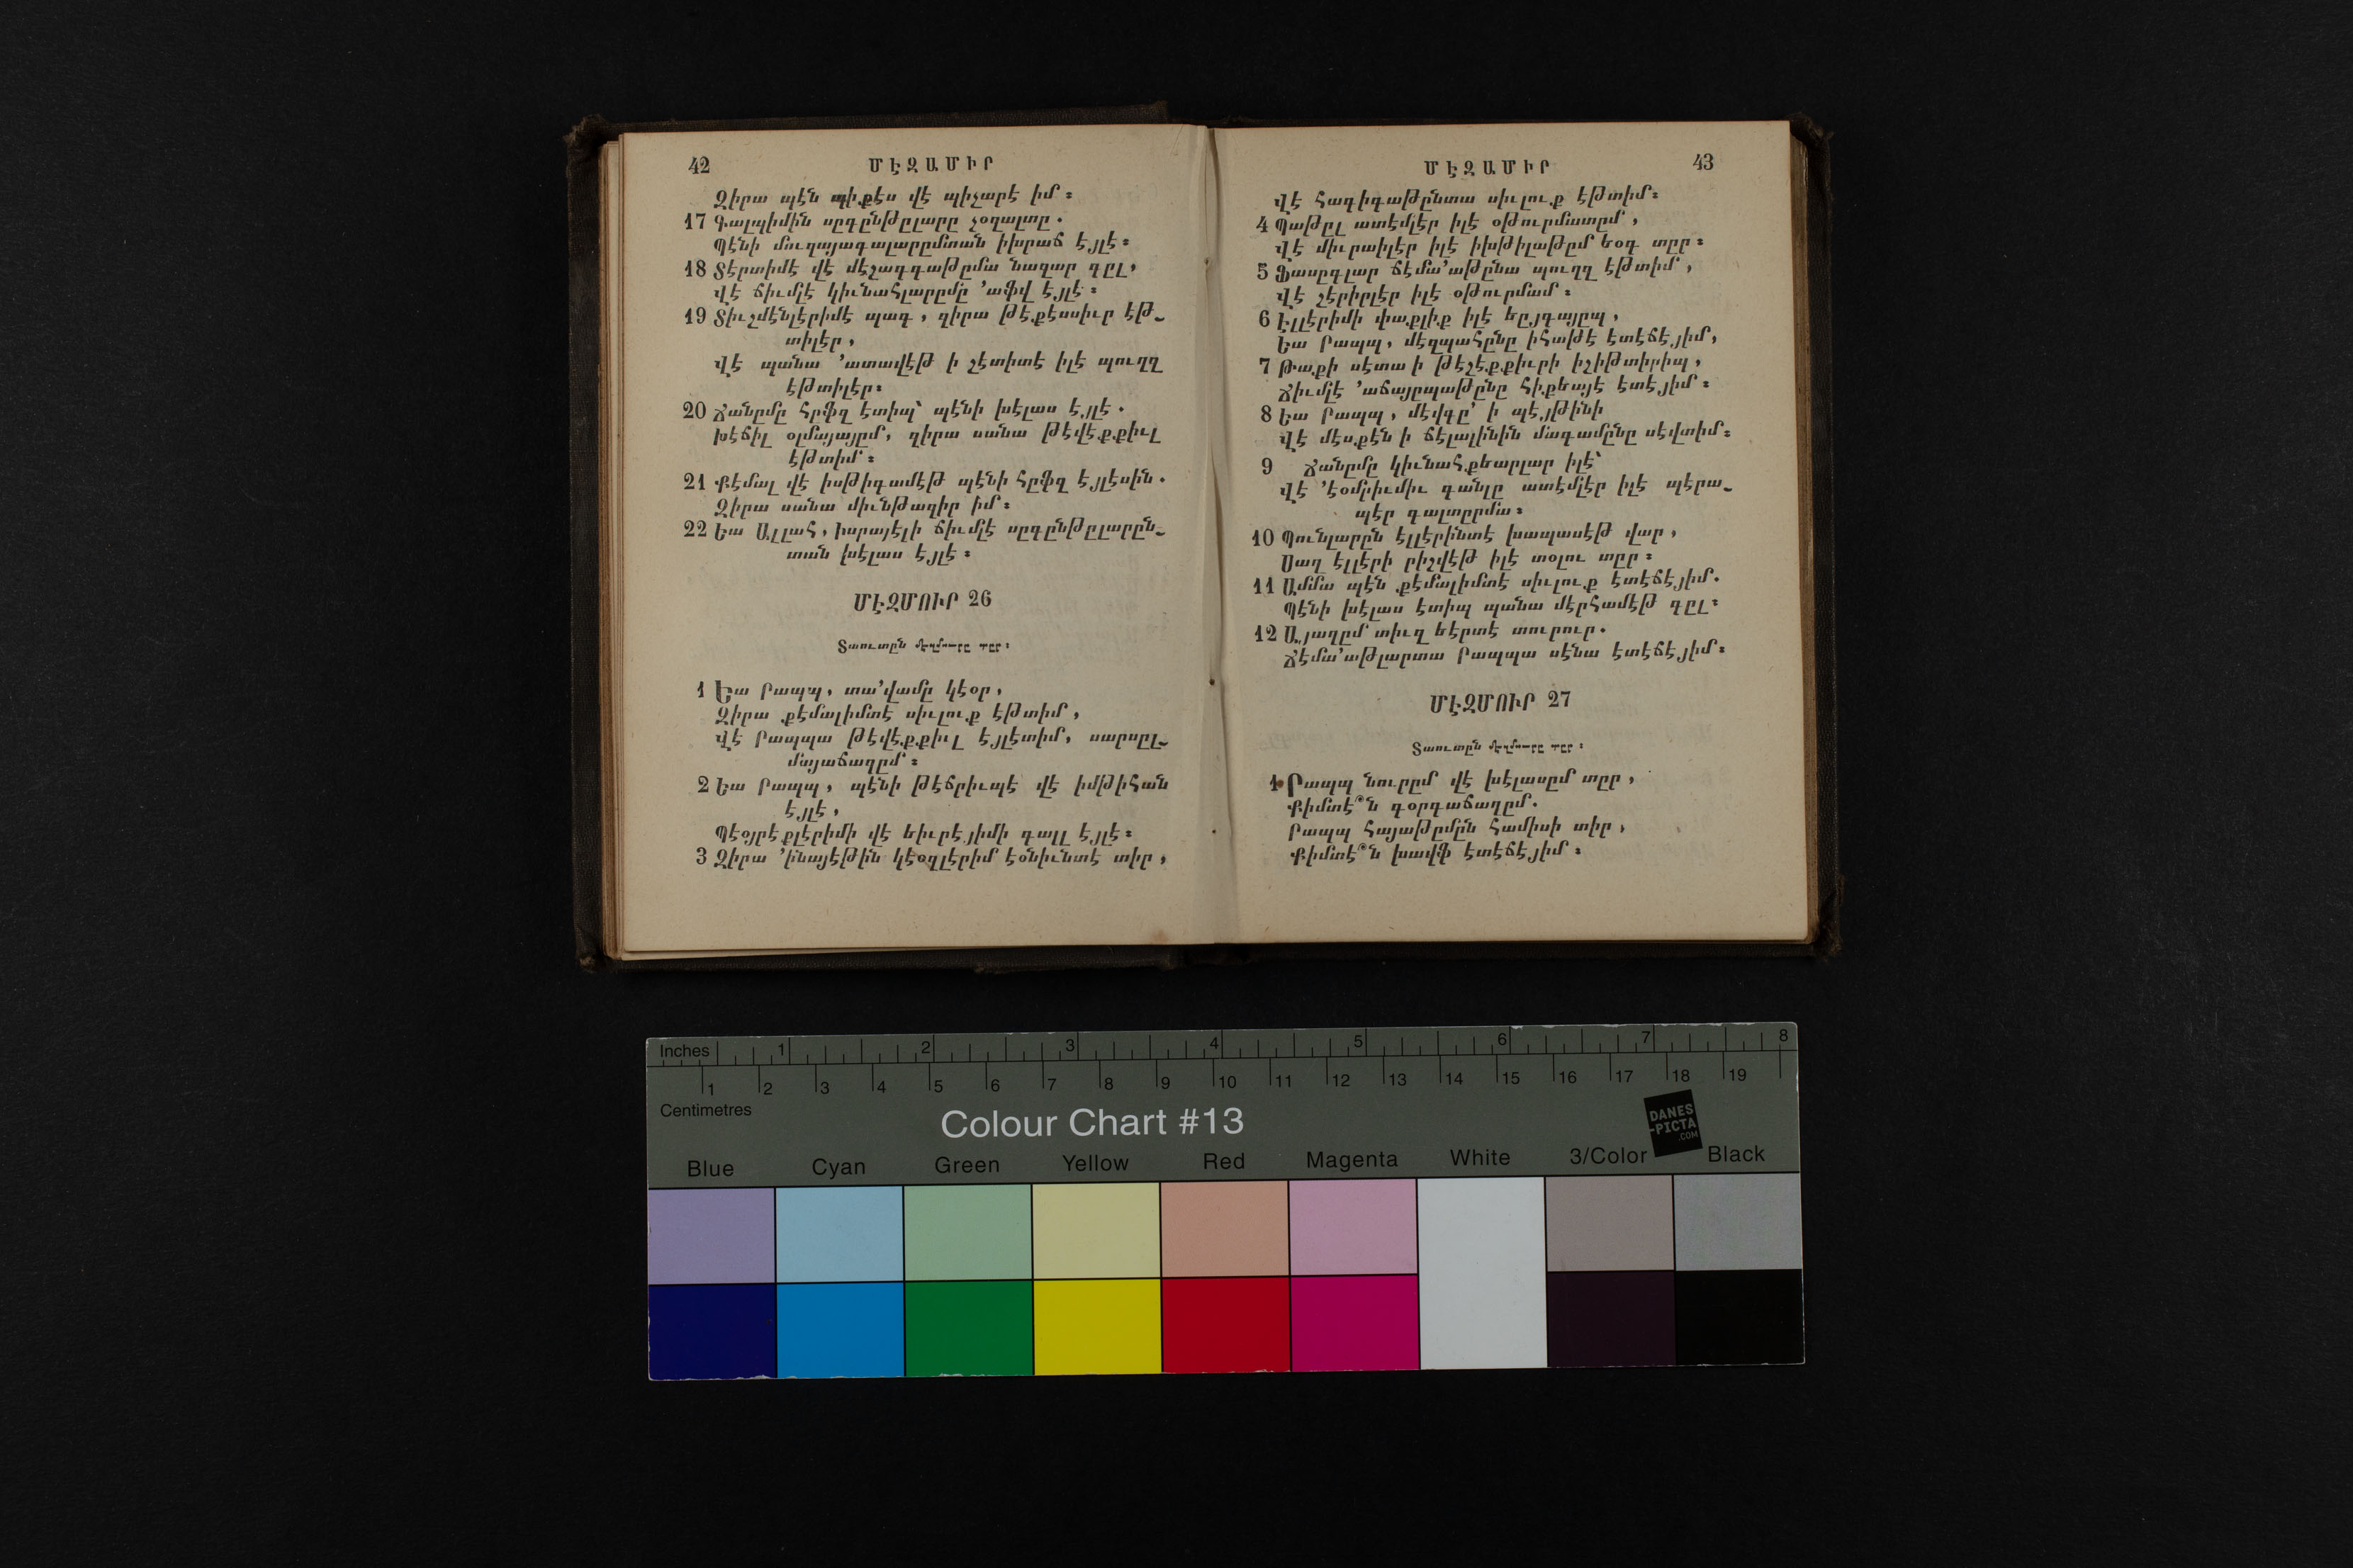 42 ՄԷԶԱՄԻՐ
Զիրա պէն պիքէս վէ պիչարէ իմ ։
17 Գալպիմին սըգընթըլարը չօղալտը .
Պէնի մուղայագալարըմտան իխրաճ էյլէ ։
18 Տէրտիմէ վէ մէշագգաթըմա նազար ղըլ,
Վէ ճիւմլէ կիւնահլարըմը ՚աֆվ էյլէ ։
19 Տիւշմէնլէրիմէ պագ , զիրա թէքէսսիւր էթ֊
տիլէր ,
Վէ պանա ՚ատավէթ ի շէտիտէ իլէ պուղզ
էթտիլէր ։
20 Ճանըմը հըֆզ էտիպ՝ պէնի խէլաս էյլէ .
Խէճիլ օլմայայըմ , զիրա սանա թէվէքքիւլ
էթտիմ ։
21 Քէմալ վէ իսթիգամէթ պէնի հըֆզ էյլէսին .
Զիրա սանա միւնթազիր իմ ։
22 Եա Ալլահ , Իսրայէլի ճիւմլէ սըգընթըլարըն֊
տան խէլաս էյլէ ։
ՄԷԶՄՈՒՐ 26
Տաուտըն մէզմուրը տըր ։
1 Եա Րապպ , տա՚վամը կէօր ,
Զիրա քէմալիմտէ սիւլուք էթտիմ ,
Վէ Րապպա թէվէքքիւլ էյլէտիմ , սարսըլ֊
մայաճաղըմ ։
2 Եա Րապպ , պէնի թէճրիւպէ վէ իմթիհան
էյլէ ,
Պէօյրէքլէրիմի վէ եիւրէյիմի գալլ էյլէ ։
3 Զիրա ՚ինայէթին կէօզլէրիմ էօնիւնտէ տիր ,
ՄԷԶԱՄԻՐ 43
Վէ հագիգաթընտա սիւլուք էթտիմ ։
4 Պաթըլ ատէմլէր իլէ օթուրմատըմ ,
Վէ միւրաիլէր իլէ իխթիլաթըմ եօգ տըր ։
5 Ֆասըգլար ճէմա՚աթընա պուղզ էթտիմ ,
Վէ շէրիրլէր իլէ օթուրմամ ։
6 Էլլէրիմի փաքլիք իլէ եըյգայըպ ,
Եա Րապպ , մէզպահընը իհաթէ էտէճէյիմ ,
7 Թաքի սէտա ի թէշէքքիւրի իշիթտիրիպ ,
Ճիւմլէ ՚աճայըպաթընը հիքեայէ էտէյիմ ։
8 Եա Րապպ , մէվգը՚ ի պէյթինի
Վէ մէսքէն ի ճէլալինին մագամընը սէվտիմ ։
9 Ճանըմը կիւնահքեարլար իլէ՝
Վէ ՚էօմրիւմիւ գանլը ատէմլէր իլէ պէրա֊
պէր գալտըրմա ։
10 Պունլարըն էլլէրինտէ խապասէթ վար ,
Սաղ էլլէրի րիշվէթ իլէ տօլու տըր ։
11 Ամմա պէն քէմալիմտէ սիւլուք էտէճէյիմ .
Պէնի խէլաս էտիպ պանա մէրհամէթ ղըլ ։
12 Այաղըմ տիւզ եէրտէ տուրուր .
Ճէմա՚աթլարտա Րապպա սէնա էտէճէյիմ ։
ՄԷԶՄՈՒՐ 27
Տաուտըն մէզմուրը տըր ։
1 Րապպ նուրըմ վէ խէլասըմ տըր ,
Քիմտէ՞ն գօրգաճաղըմ .
Րապպ հայաթըմըն համիսի տիր ,
Քիմտէ՞ն խավֆ էտէճէյիմ ։
Inches 1 2 3 4 5 6 7 8
1 2 3 4 5 6 7 8 9 10 11 12 13 14 15 16 17 18 19
Centimetres
Colour Chart #13
DANES
-PICTA
.COM
Blue Cyan Green Yellow Red Magenta White 3/Color Black